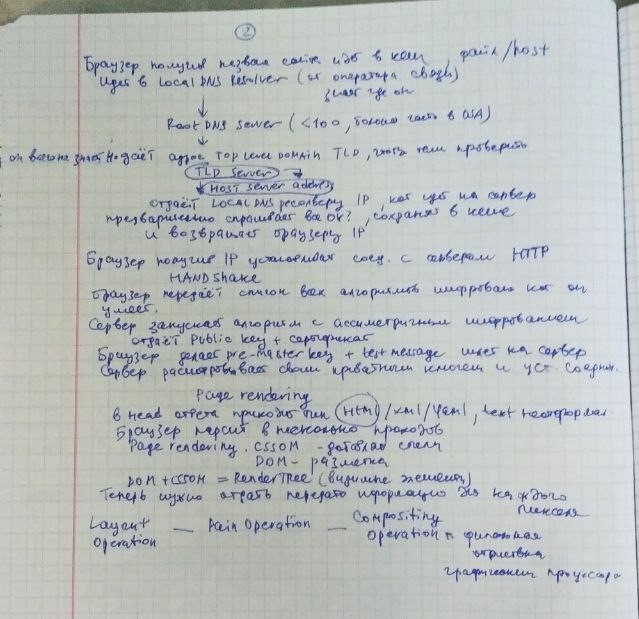 2
Браузер получив название сайта идёт в кеш, файл/host
идёт в Local DNS Resolver (от оператора связи)
знает где он
Root DNS Server (<100, большая часть в USA)
он всего не знает но даёт адрес TOP Level DOMAIN TLD, чтобы там проверить
TLD Server
Host Server address
отдаёт LOCAL DNS резолверу IP, кот идёт на сервер
предварительно спрашивает все ок?, сохраняет в кеше
и возвращает браузеру IP
Браузер получив IP устанавливает соед. с сервером HTTP
HANDShake
Браузер передаёт список всех алгоритмов шифрования кот он
умеет.
Сервер запускает алгоритм с ассиметричным шифрованием
отдаёт Public key + сертификат
Браузер делает pre-master key + test message шлет на сервер
Сервер расшифровывает своим приватным ключом и уст. соедин.
Page rendering
в Head ответа приходит тип HTML/xml/Yaml, text
Браузер парсит в несколько проходов
Page rendering. CSSOM - добавляя стили
DOM - разметка
DOM + CSSOM = RenderTree (видимые элементы)
Теперь нужно информацию для каждого
пикселя
Layout — Pain Operation — Compositing
Operation Operation финальная
отрисовка
графическом процессоре